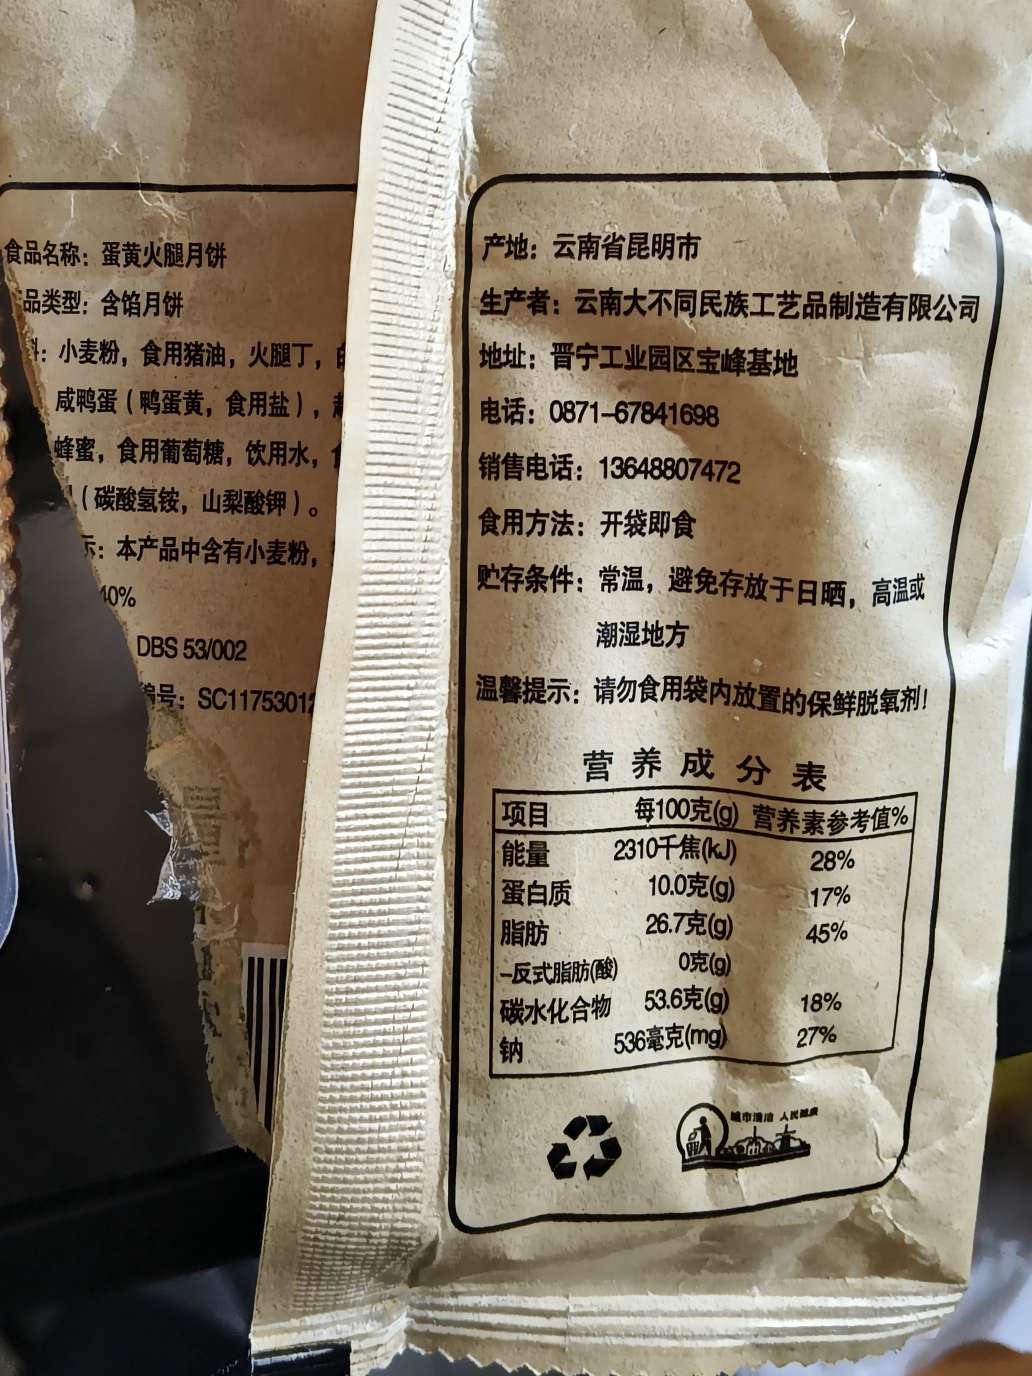 食品名称：蛋黄火腿月饼
品类型：含馅月饼
料：小麦粉，食用猪油，火腿丁，
咸鸭蛋（鸭蛋黄，食用盐），
蜂蜜，食用葡萄糖，饮用水，
（碳酸氢铵，山梨酸钾）。
示：本产品中含有小麦粉，
40%
DBS 53/002
编号：SC1175301
产地：云南省昆明市
生产者：云南大不同民族工艺品制造有限公司
地址：晋宁工业园区宝峰基地
电话：0871-67841698
销售电话：13648807472
食用方法：开袋即食
贮存条件：常温，避免存放于日晒，高温或
潮湿地方
温馨提示：请勿食用袋内放置的保鲜脱氧剂！
营养成分表
项目 每100克(g) 营养素参考值%
能量 2310千焦(kJ) 28%
蛋白质 10.0克(g) 17%
脂肪 26.7克(g) 45%
-反式脂肪(酸) 0克(g)
碳水化合物 53.6克(g) 18%
钠 536毫克(mg) 27%
城市清洁 人民健康